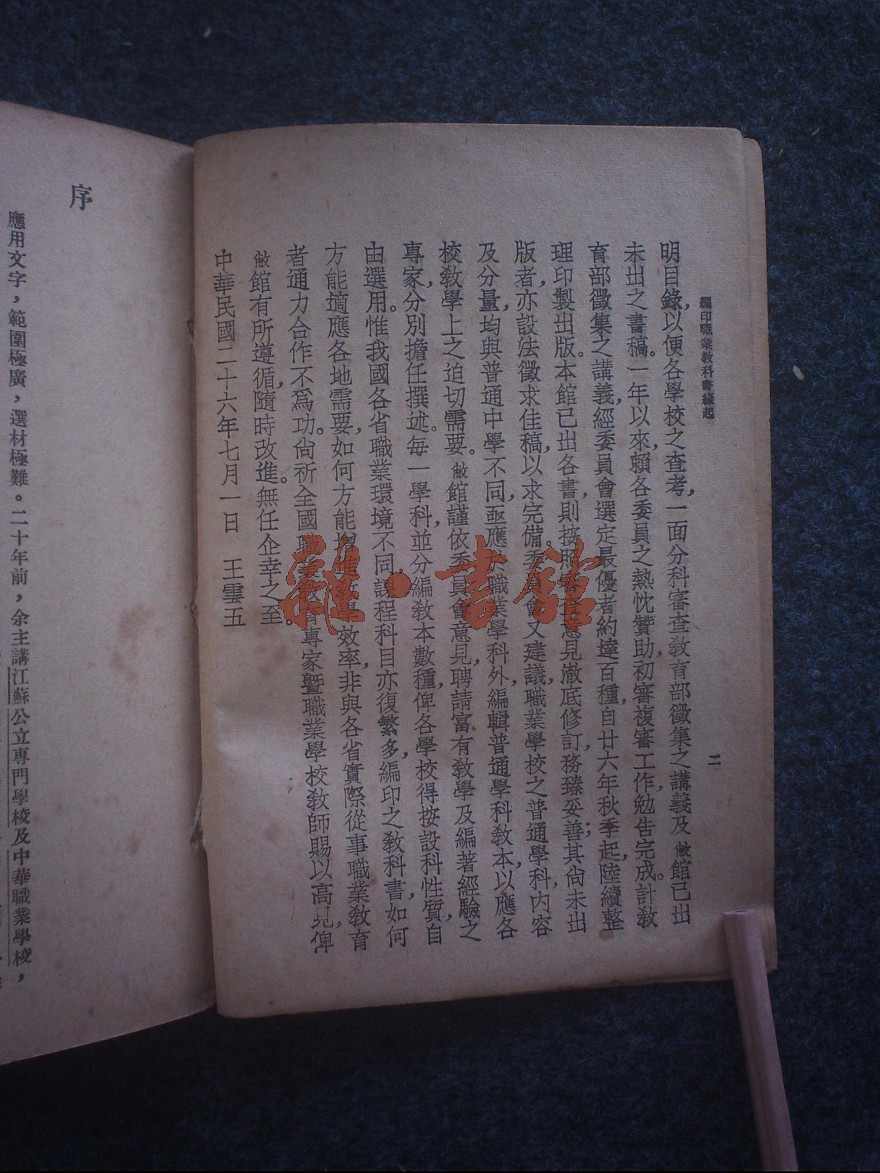 編印職業教科書緣起
二
明目錄,以便各學校之查考,一面分科審查敎育部徵集之講義及敝館已出
未出之書稿。一年以來,賴各委員之熱忱贊助,初審複審工作勉吿完成。計敎
育部徵集之講義經委員會選定最優者約達百種,自廿六年秋季起陸續整
理印製出版。本館已出各書,則按照審查意見澈底修訂,務臻妥善;其尙未出
版者亦設法徵求佳稿,以求完備。委員會又建議職業學校之普通學科內容
及分量均與普通中學不同,亟應於職業學科外,編輯普通學科敎本,以應各
校敎學上之迫切需要。敝館謹依委員會意見,聘請富有敎學及編著經驗之
專家,分別擔任撰述,每一學科並分編敎本數種,俾各學校得按設科性質,自
由選用。惟我國各省職業環境不同,課程科目亦復繁多,編印之敎科書如何
方能適應各地需要,如何方能增進敎學效率,非與各省實際從事職業敎育
者通力合作不爲功。尙祈全國職業敎育專家曁職業學校敎師賜以高見,俾
敝館有所遵循,隨時改進,無任企幸之至。
中華民國二十六年七月一日 王雲五
序
應用文字,範圍極廣,選材極難。二十年前,余主講江蘇公立專門學校及中華職業學校,
雜·書館